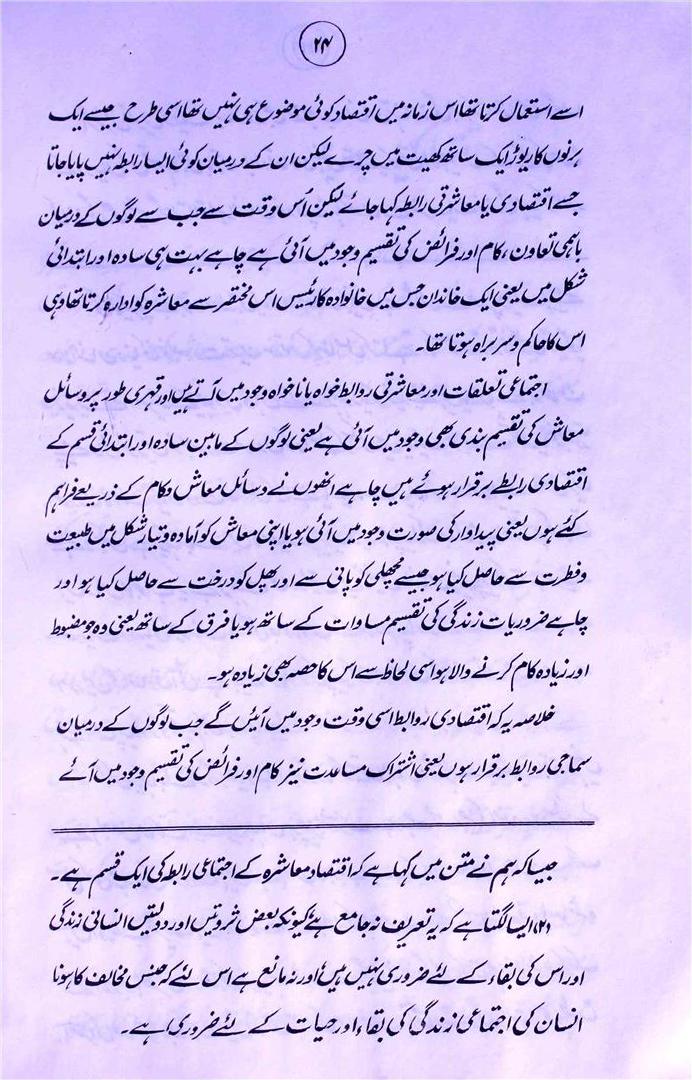 ۲۴
اسے استعمال کرتا تھا اس زمانہ میں اقتصاد کوئی موضوع ہی نہیں تھا اسی طرح جیسے ایک
ہرنوں کا ریوڑ ایک ساتھ کھیت میں چرے لیکن ان کے درمیان کوئی ایسا رابطہ نہیں پایا جاتا
جسے اقتصادی یا معاشرتی رابطہ کہا جائے لیکن اُس وقت سے جب سے لوگوں کے درمیان
باہمی تعاون، کام اور فرائض کی تقسیم وجود میں آئی ہے چاہے بہت ہی سادہ اور ابتدائی
شکل میں یعنی ایک خاندان جس میں خانوادہ کا رئیس اس مختصر سے معاشرہ کو ادارہ کرتا تھا وہی
اس کا حاکم و سربراہ ہوتا تھا۔
اجتماعی تعلقات اور معاشرتی روابط خواہ یا نا خواہ وجود میں آتے ہیں اور قہری طور پر وسائل
معاش کی تقسیم بندی بھی وجود میں آئی ہے یعنی لوگوں کے مابین سادہ اور ابتدائی قسم کے
اقتصادی رابطے برقرار ہوئے ہیں چاہے انھوں نے وسائل معاش و کام کے ذریعے فراہم
کئے ہوں یعنی پیداوار کی صورت وجود میں آئی ہو یا اپنی معاش کو آمادہ و تیار شکل میں طبیعت
و فطرت سے حاصل کیا ہو جیسے مچھلی کو پانی سے اور پھل کو درخت سے حاصل کیا ہو اور
چاہے ضروریات زندگی کی تقسیم مساوات کے ساتھ ہو یا فرق کے ساتھ یعنی وہ جو مضبوط
اور زیادہ کام کرنے والا ہو اسی لحاظ سے اس کا حصہ بھی زیادہ ہو۔
خلاصہ یہ کہ اقتصادی روابط اسی وقت وجود میں آئیں گے جب لوگوں کے درمیان
سماجی روابط برقرار ہوں یعنی اشتراک مساعدت نیز کام اور فرائض کی تقسیم وجود میں آئے
جیسا کہ ہم نے متن میں کہا ہے کہ اقتصاد معاشرہ کے اجتماعی رابطہ کی ایک قسم ہے۔
(۲) ایسا لگتا ہے کہ یہ تعریف نہ جامع ہے کیونکہ بعض ثروتیں اور دولتیں انسانی زندگی
اور اس کی بقاء کے لئے ضروری نہیں ہیں اور نہ مانع ہے اس لئے کہ جنس مخالف کا ہونا
انسان کی اجتماعی زندگی کی بقاء اور حیات کے لئے ضروری ہے۔